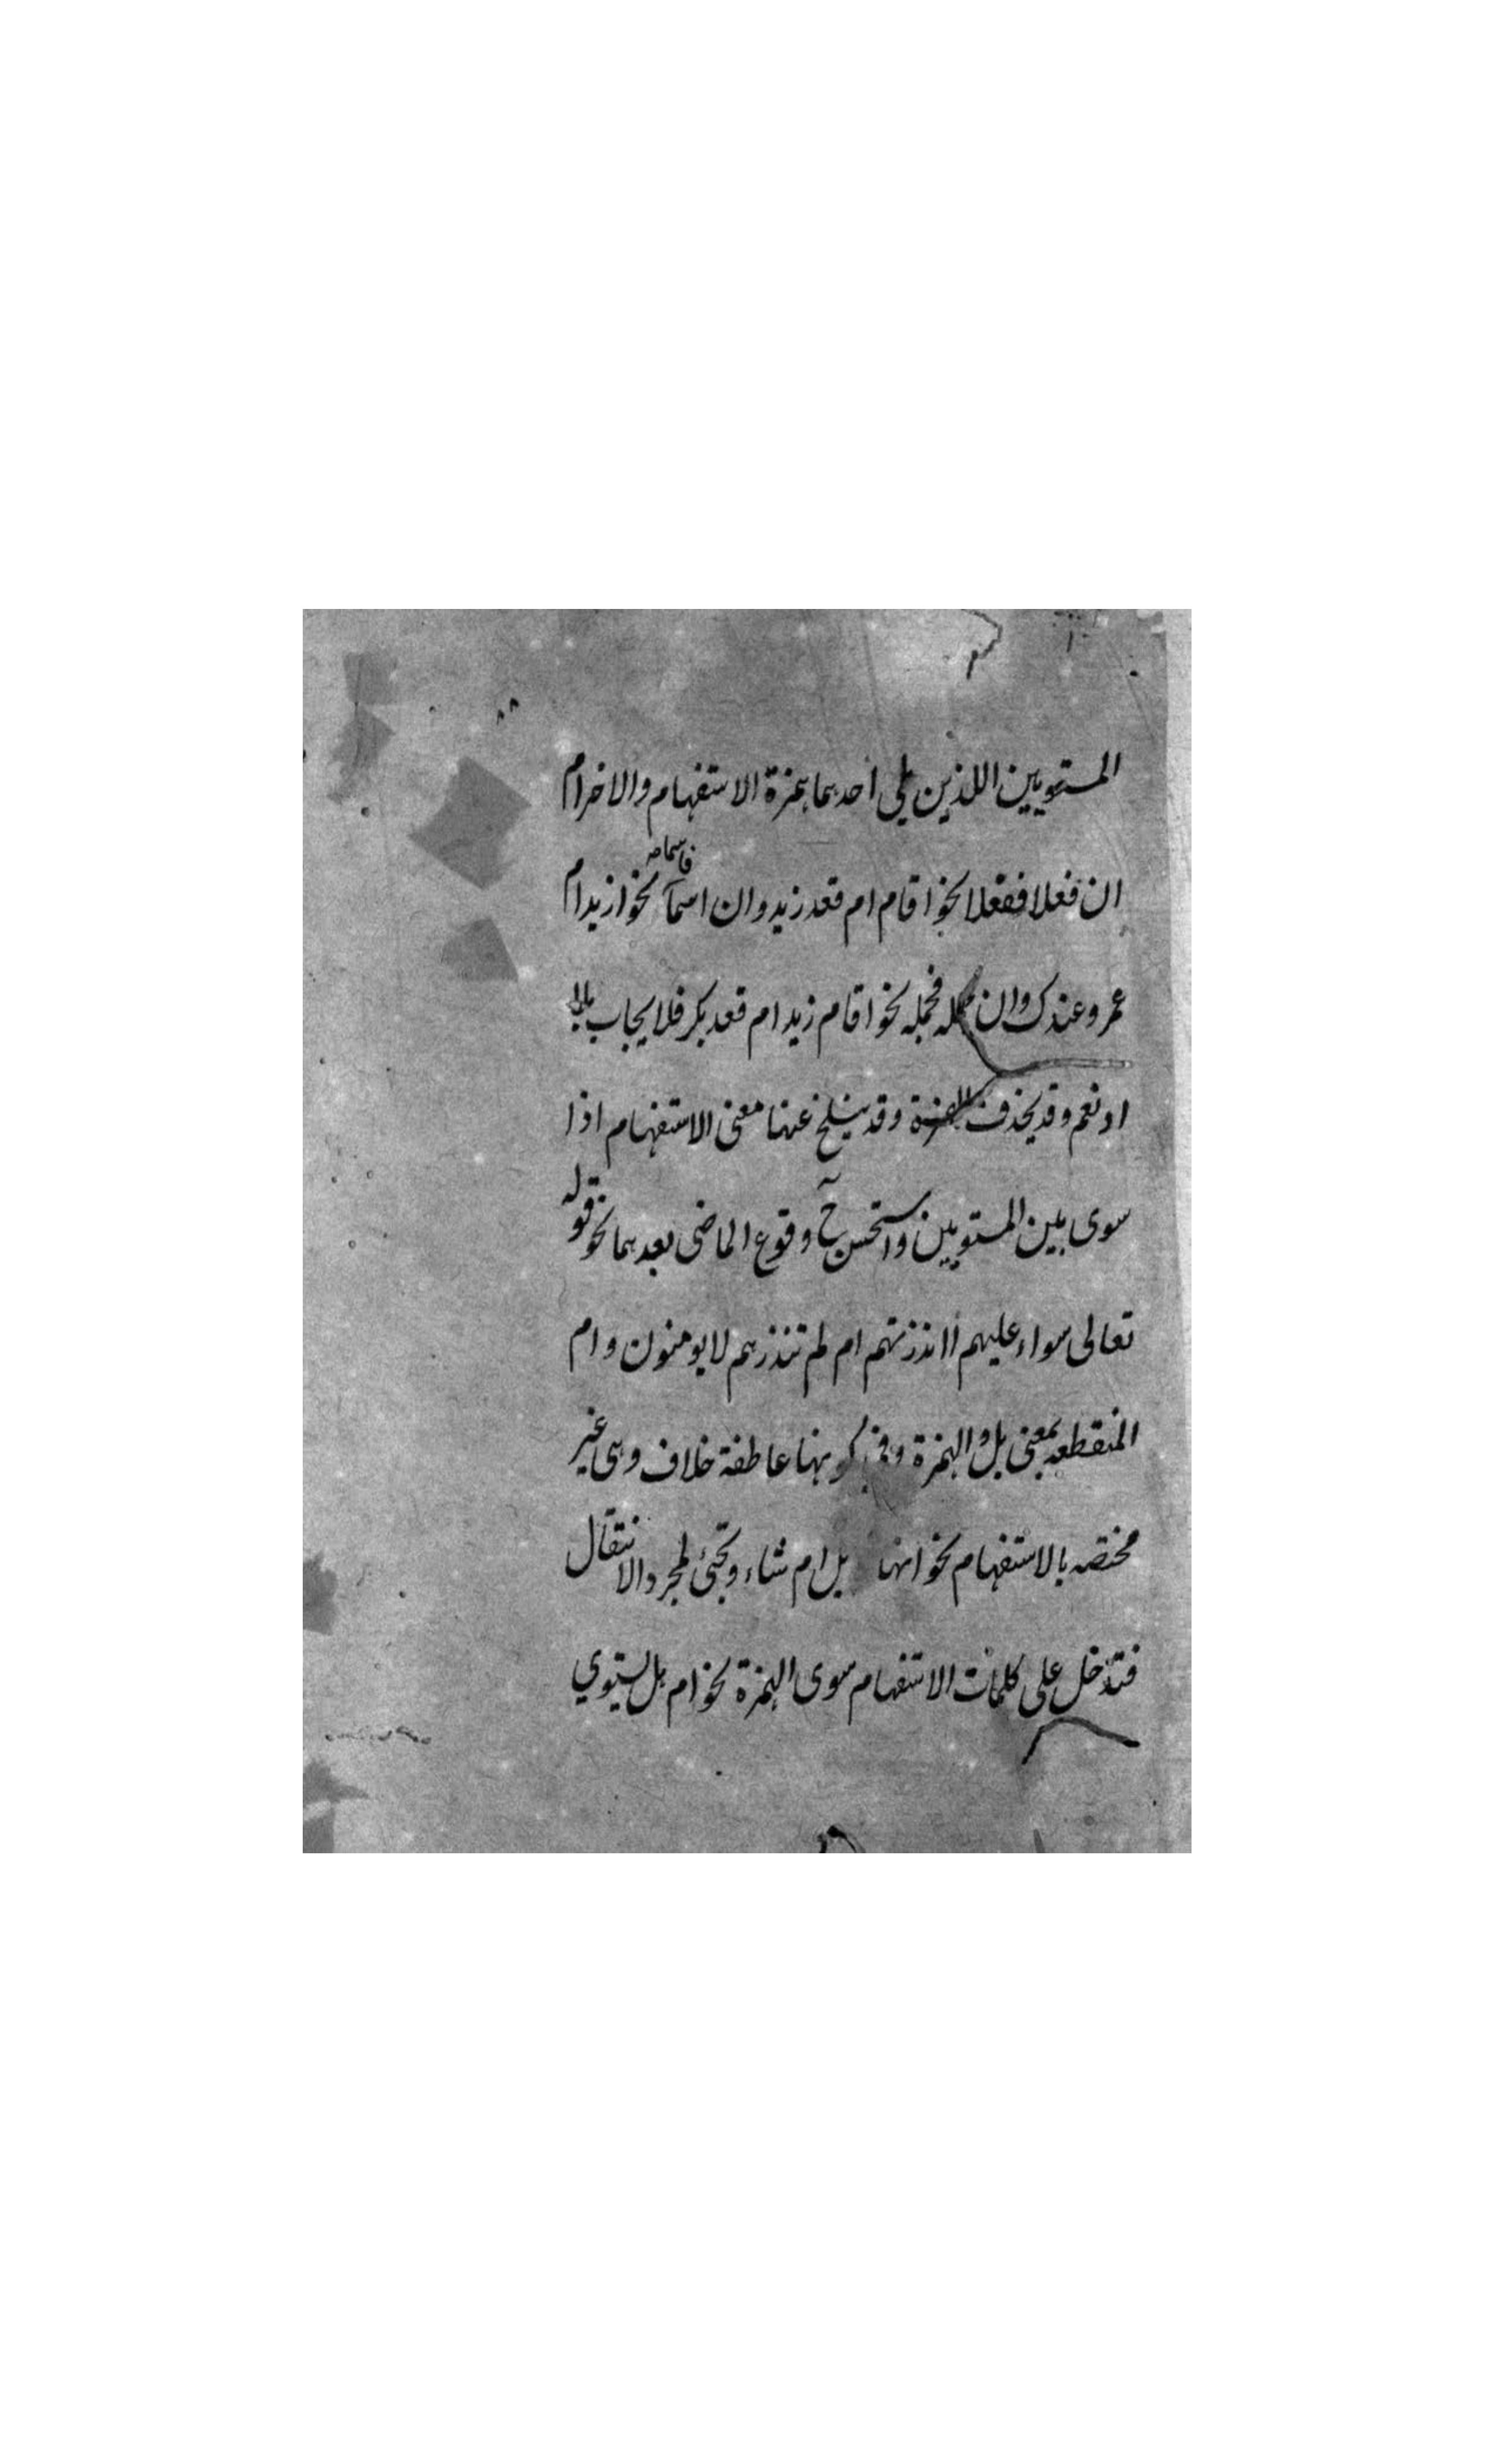 المستويين اللذين يلي احدهما همزة الاستفهام والاخر ام
ان فعلا ففعلا نحو اقام ام قعد زيد وان اسما فاسما نحو ازيد ام
عمرو عندك وان جمله فجمله نحو اقام زيد ام قعد بكر فلا يجاب بلا
او نعم وقد يحذف الهمزة وقد ينسلخ عنها معنى الاستفهام اذا
سوى بين المستويين واستحسن ح وقوع الماضى بعدهما نحو قوله
تعالى سواء عليهم أانذرتهم ام لم تنذرهم لا يومنون وام
المنقطعه بمعنى بل والهمزة وفي كونها عاطفة خلاف وهى غير
مختصه بالاستفهام نحو انها بل ام شاء وتجئ لمجرد الانتقال
فتدخل على كلمات الاستفهام سوى الهمزة نحو ام هل يستوي